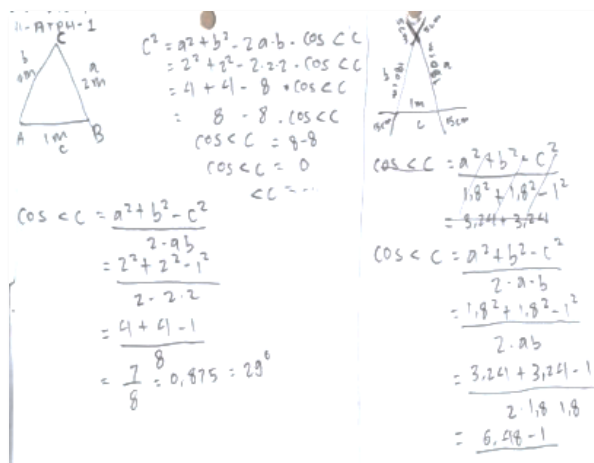 C
b
a
2m
A
1m
B
c
c² = a² + b² - 2a.b. cos <C
= 2² + 2² - 2.2.2. cos <C
= 4 + 4 - 8 . cos <C
= 8 - 8 . cos <C
cos <C = 8-8
cos <C = 0
<C = ...
cos <C = a² + b² - c²
2.ab
= 2² + 2² - 1²
2.2.2
= 4 + 4 - 1
8
= 7
8
= 0,875 = 29°
b
a
1m
15cm
c
15cm
cos <C = a² + b² - c²
1,8² + 1,8² - 1²
= 3,24 + 3,24
cos <C = a² + b² - c²
2.a.b
= 1,8² + 1,8² - 1²
2.ab
= 3,24 + 3,24 - 1
2.1,8 1,8
= 6,48 - 1